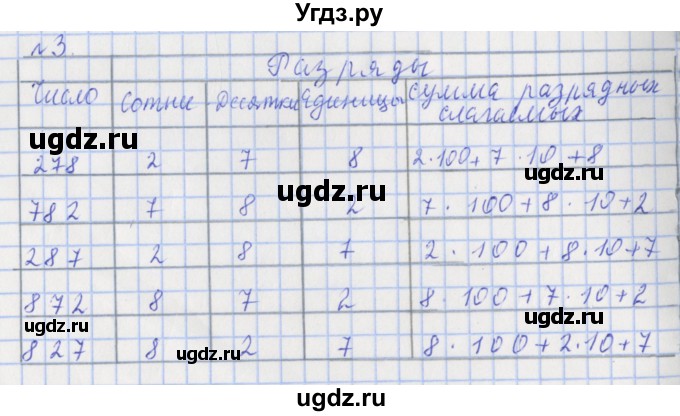 Угдз.ру
№3.
Разряды
Число Сотни Десятки Единицы Сумма разрядных
слагаемых
ugdz.ru
278 2 7 8 2·100+7·10+8
ugdz.ru ugdz.ru
782 7 8 2 7·100+8·10+2
ugdz.ru
287 2 8 7 2·100+8·10+7
872 8 7 2 8·100+7·10+2
ugdz.ru ugdz.ru
827 8 2 7 8·100+2·10+7
ugdz.ru
ugdz.ru